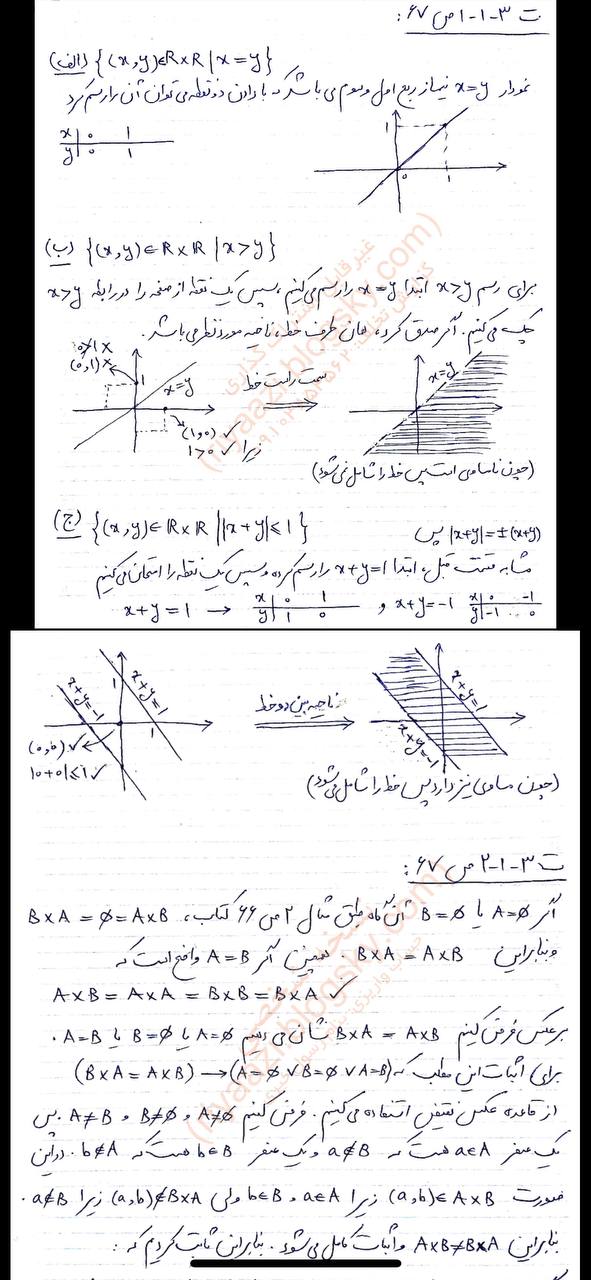 ت ۳-۱-۱ ص ۶۷ :
الف) {(x,y)∈R×R | x=y}
نمودار x=y نیمساز ربع اول و سوم می باشد که با دادن دو نقطه می توان آن را رسم کرد
x | 0 1
y | 0 1
1
0 1
ب) {(x,y)∈R×R | x>y}
برای رسم x>y ابتدا x=y را رسم می کنیم، سپس یک نقطه از صفحه را در رابطه x>y
چک می کنیم. اگر صدق کرد، همان طرف خط، ناحیه مورد نظر می باشد.
0≯1 ×
(0,1) ×
1
x=y
(1,0) ✓
زیرا 1>0 ✓
سمت راست خط
x=y
(چون نامساوی است پس خط را شامل نمی شود)
ج) {(x,y)∈R×R | |x+y|≤1}
|x+y|=±(x+y) پس
مشابه قسمت قبل، ابتدا x+y=1 را رسم کرده و سپس یک نقطه را امتحان می کنیم
x+y=1 → x | 0 1 و x+y=-1 x | 0 -1
y | 1 0 y | -1 0
x+y=-1
1
x+y=1
1
(0,0) ✓
|0+0|≤1 ✓
ناحیه بین دو خط
x+y=1
x+y=-1
(چون مساوی نیز دارد پس خط را شامل می شود)
ت ۳-۱-۲ ص ۶۷ :
اگر A=∅ یا B=∅ آن گاه طبق مثال ۲ ص ۶۶ کتاب، B×A=∅=A×B
و بنابراین B×A=A×B. همچنین اگر A=B واضح است که
A×B=A×A=B×B=B×A ✓
برعکس فرض کنیم B×A=A×B نشان می دهیم A=∅ یا B=∅ یا A=B.
برای اثبات این مطلب که (B×A=A×B)→(A=∅∨B=∅∨A=B)
از قاعده عکس نقیض استفاده می کنیم. فرض کنیم A≠∅ و B≠∅ و A≠B. پس
یک عنصر a∈A هست که a∉B و یک عنصر b∈B هست که b∉A. در این
صورت (a,b)∈A×B زیرا a∈A و b∈B ولی (a,b)∉B×A زیرا a∉B.
بنابراین A×B≠B×A و اثبات کامل می شود. بنابراین ثابت کردیم که :
(riyaazi.blogsky.com)
(riyaazi.blogsky.com)